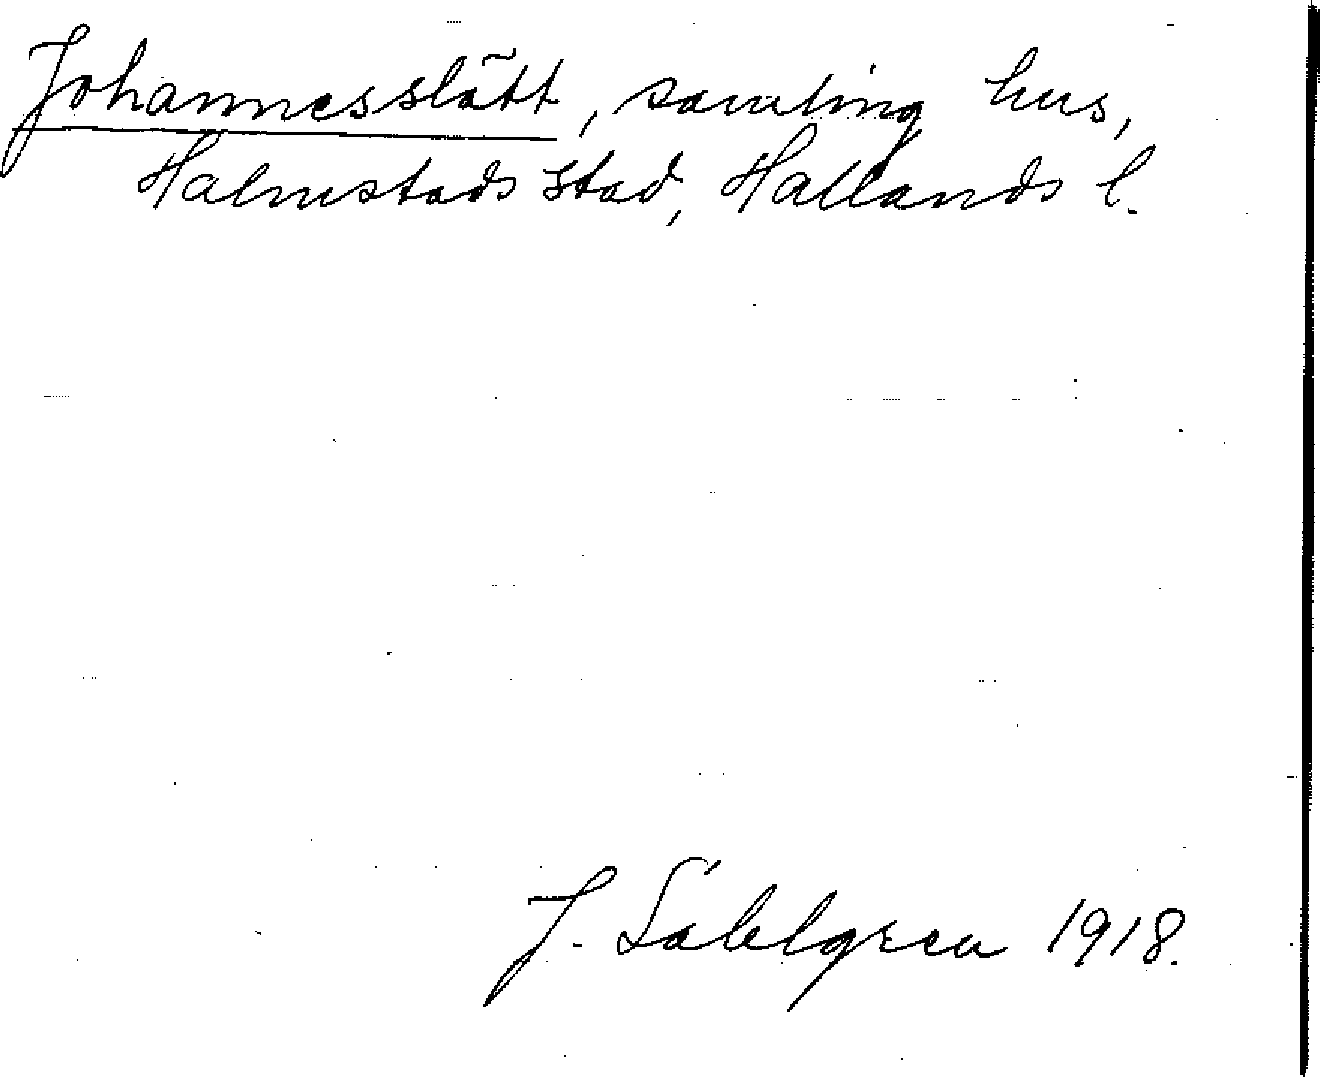 Johannesslätt, samling hus,
Halmstads stad, Hallands l.
J. Sahlgren 1918.